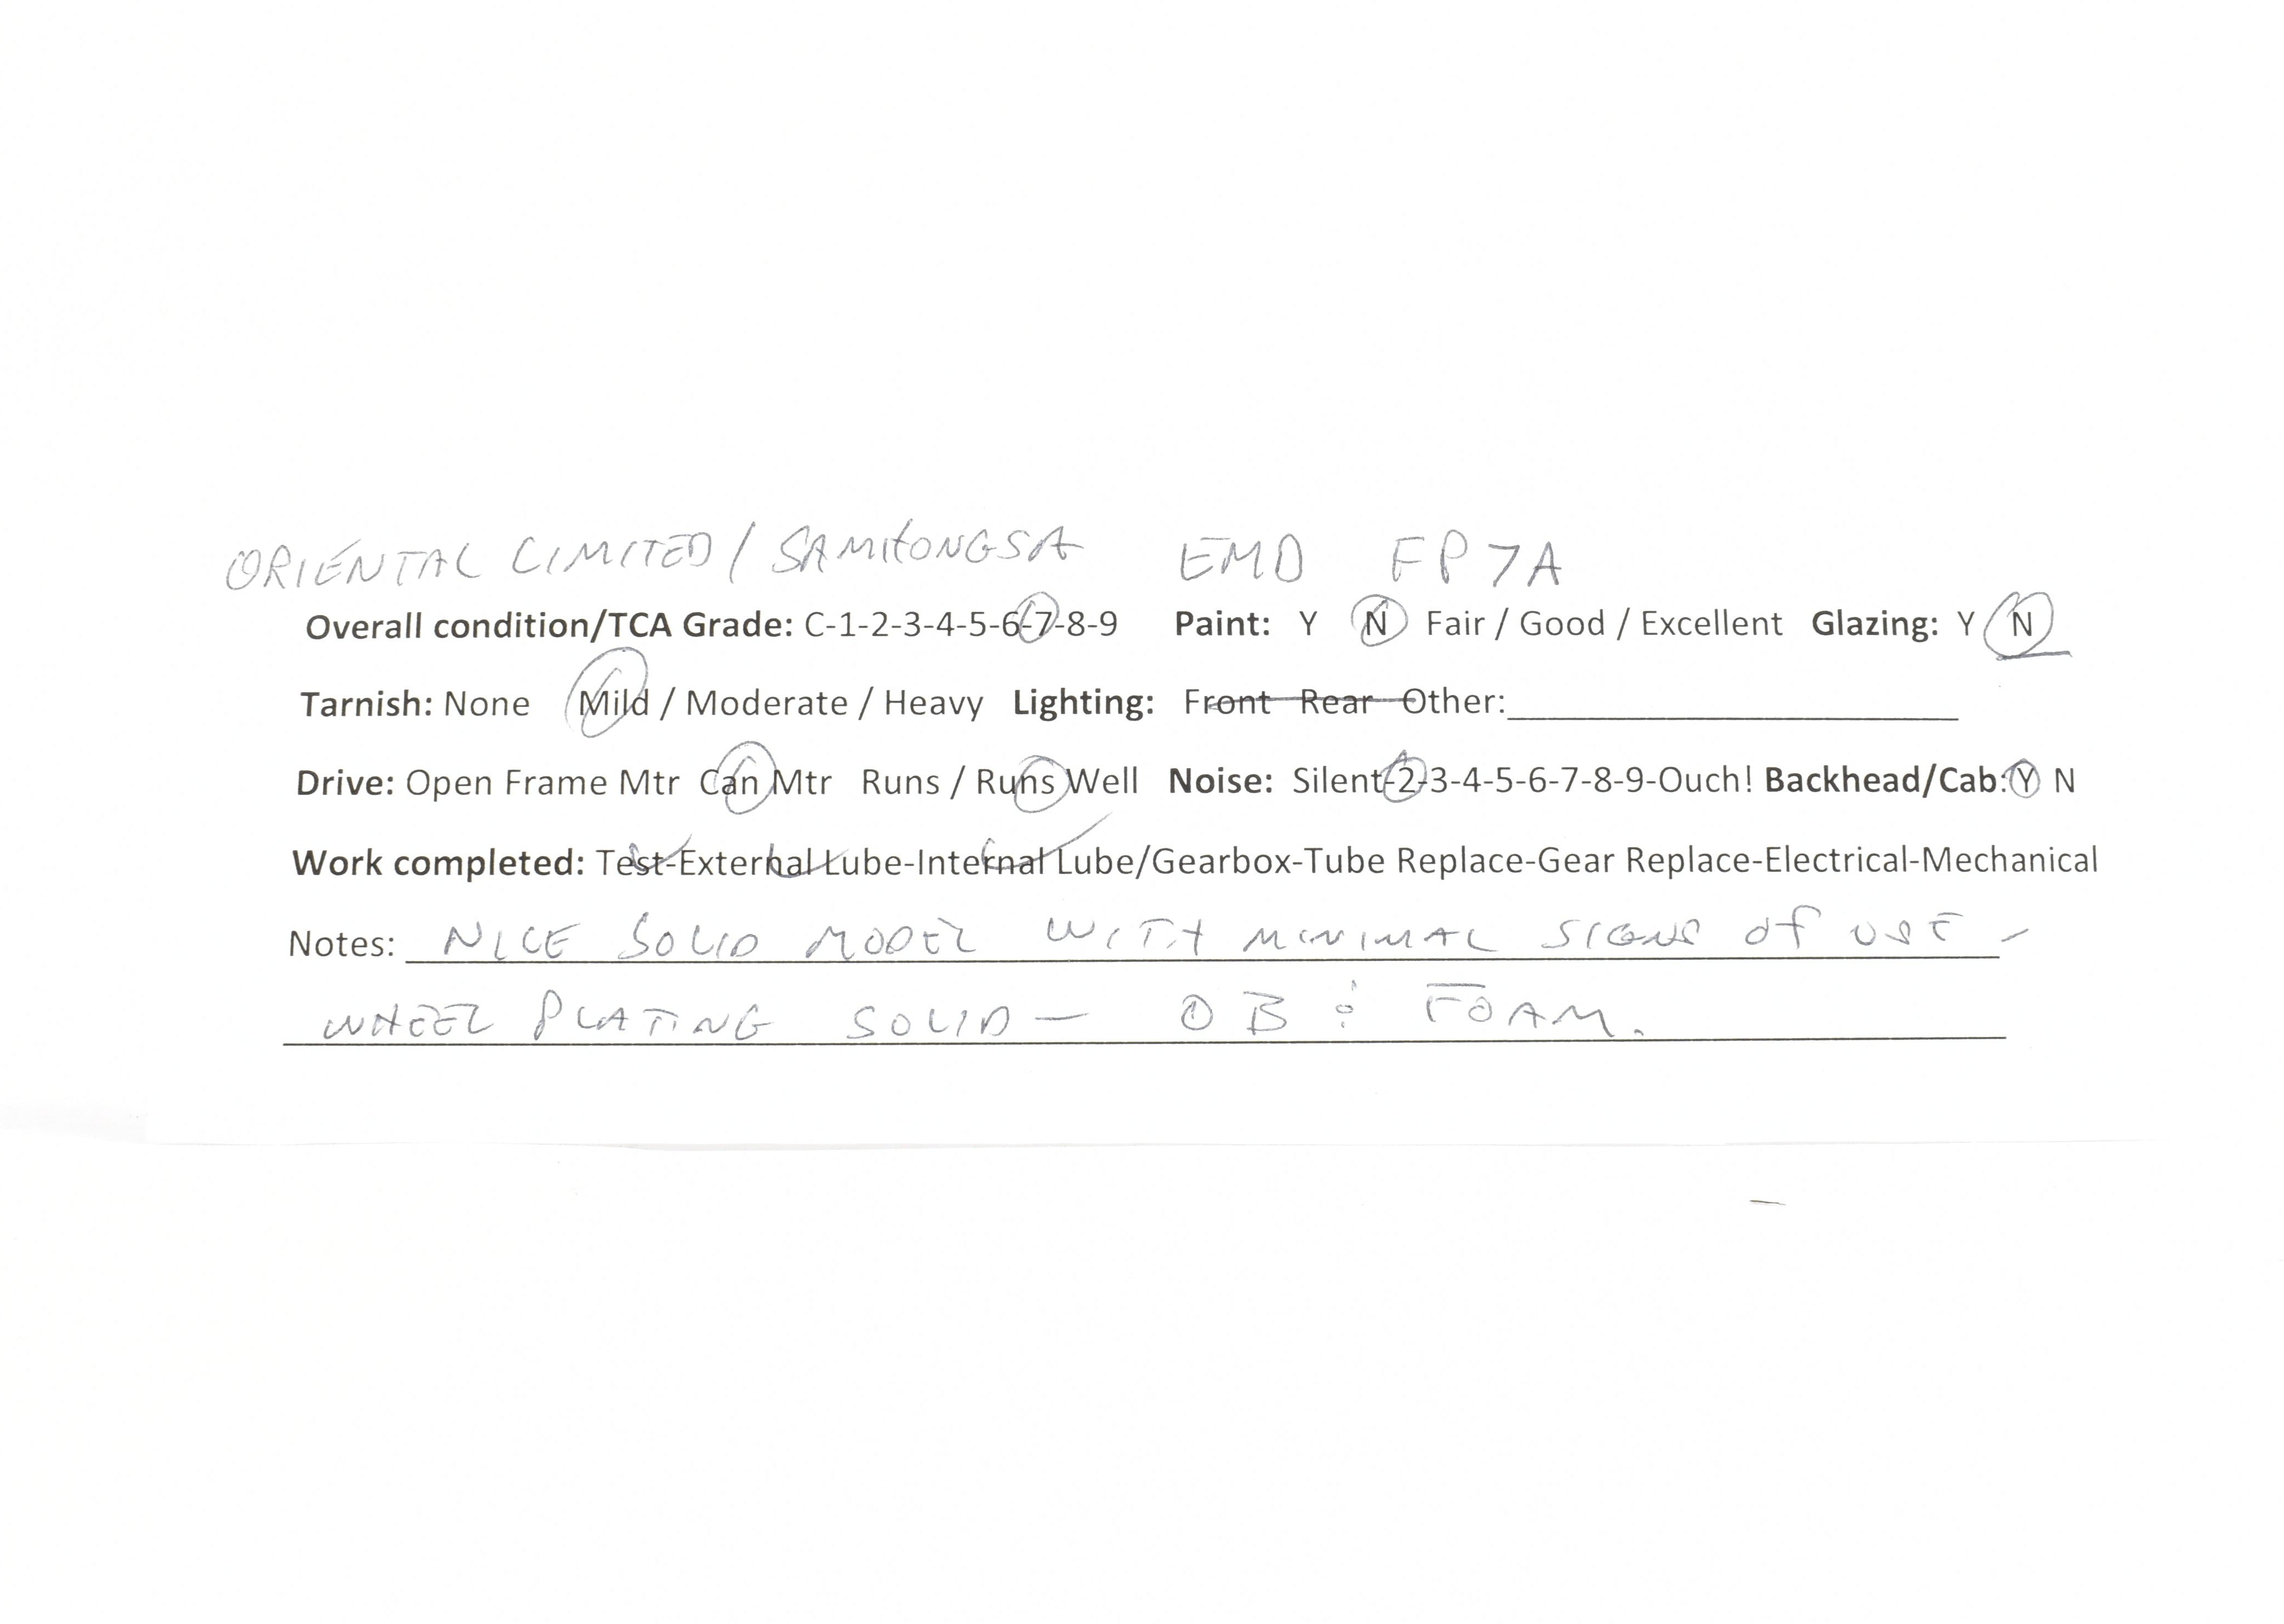 ORIENTAL LIMITED / SAMHONGSA EMD FP7A
Overall condition/TCA Grade: C-1-2-3-4-5-6-7-8-9 Paint: Y N Fair / Good / Excellent Glazing: Y N
Tarnish: None Mild / Moderate / Heavy Lighting: Front Rear Other:
Drive: Open Frame Mtr Can Mtr Runs / Runs Well Noise: Silent-2-3-4-5-6-7-8-9-Ouch! Backhead/Cab: Y N
Work completed: Test-External Lube-Internal Lube/Gearbox-Tube Replace-Gear Replace-Electrical-Mechanical
Notes: NICE SOLID MODEL WITH MINIMAL SIGNS OF USE -
WHEEL PLATING SOLID - OB & FOAM.